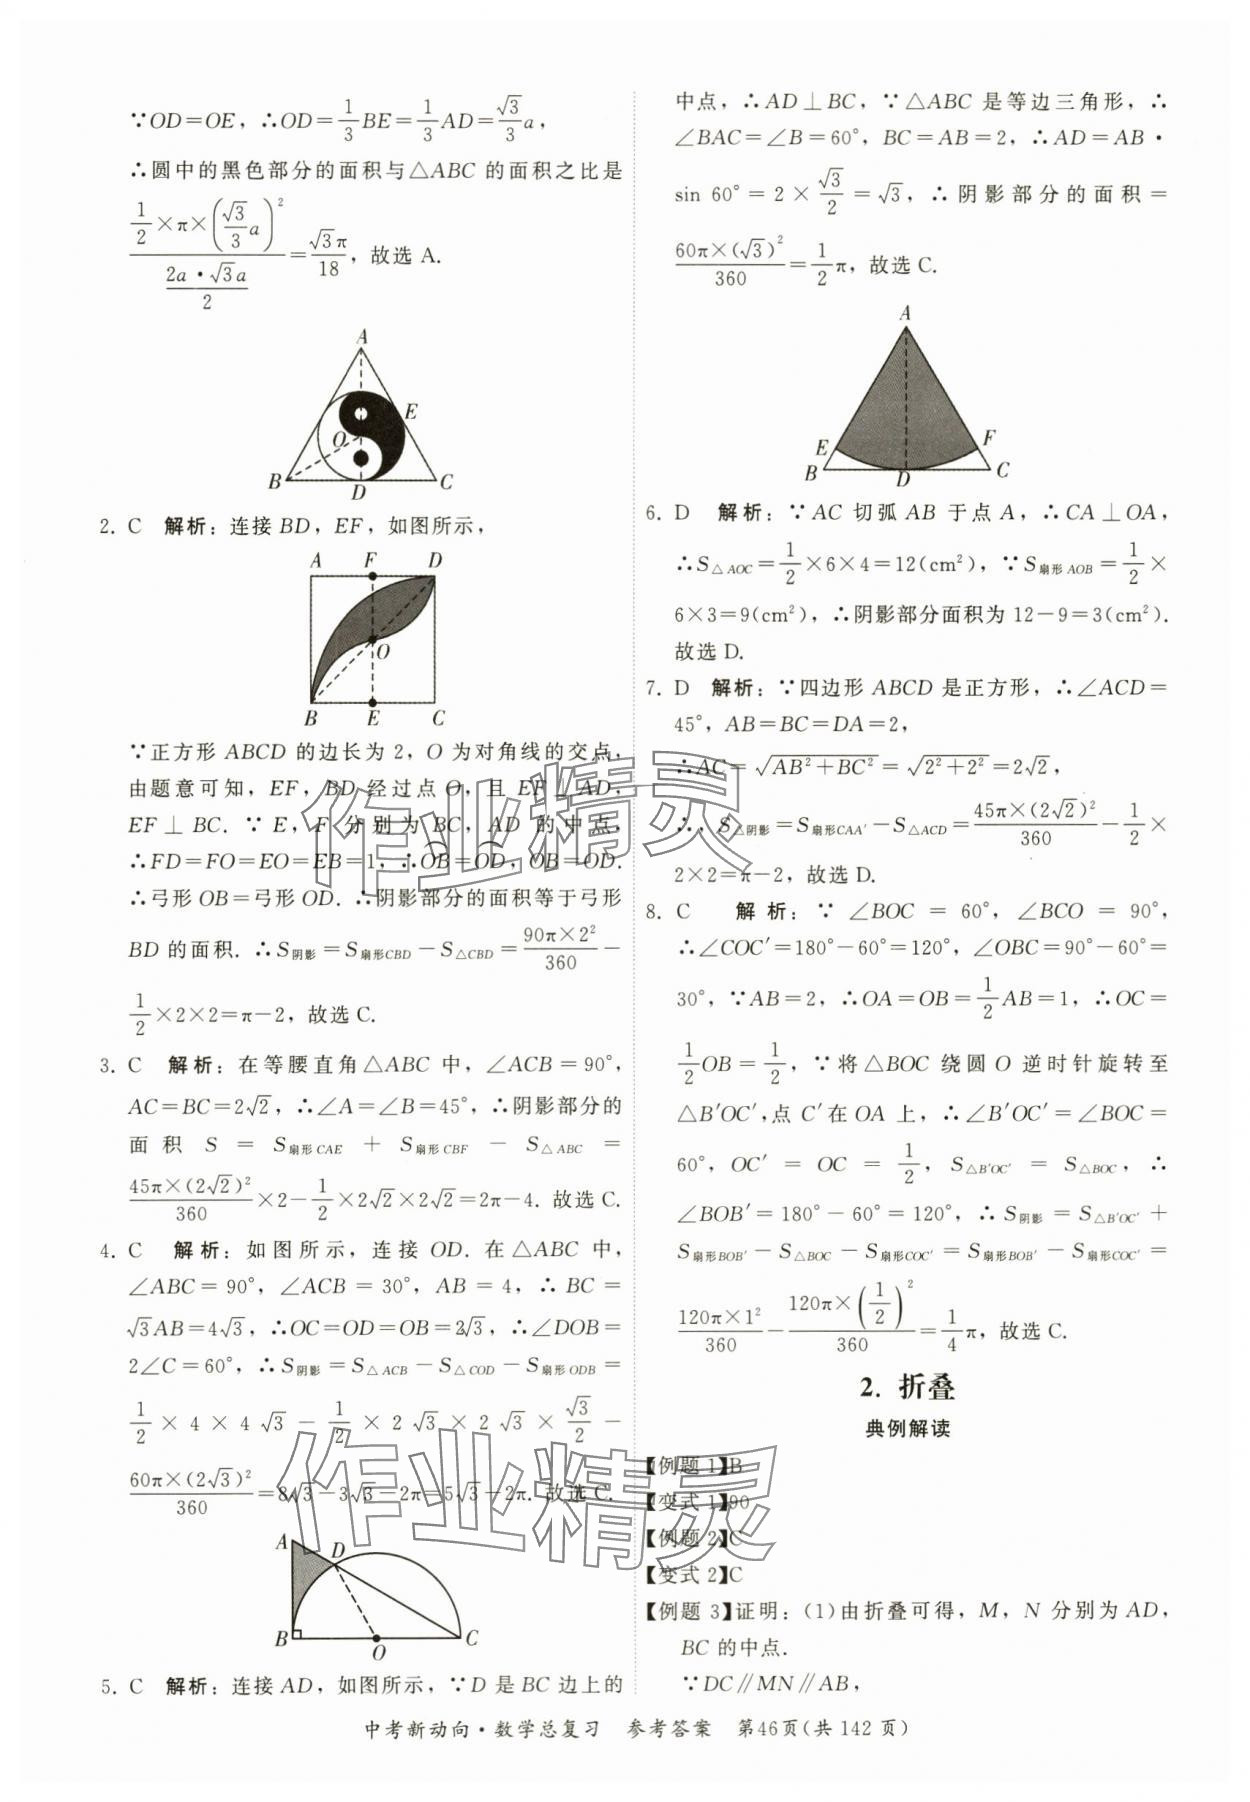 ∵OD=OE，∴OD=1/3BE=1/3AD=√3/3a，
∴圆中的黑色部分的面积与△ABC 的面积之比是
(1/2×π×(√3/3a)²)/(2a·√3a/2)=√3π/18，故选 A.
A
E
O
B
D
C
2. C 解析：连接 BD，EF，如图所示，
A F D
O
B E C
∵正方形 ABCD 的边长为 2，O 为对角线的交点，
由题意可知，EF，BD 经过点 O，且 EF⊥AD，
EF⊥BC. ∵E，F 分别为 BC，AD 的中点，
∴FD=FO=EO=EB=1，∴⌒OB=⌒OD，OB=OD.
∴弓形 OB=弓形 OD. ∴阴影部分的面积等于弓形
BD 的面积. ∴S阴影=S扇形CBD−S△CBD=90π×2²/360−
1/2×2×2=π−2，故选 C.
3. C 解析：在等腰直角△ABC 中，∠ACB=90°，
AC=BC=2√2，∴∠A=∠B=45°，∴阴影部分的
面积 S=S扇形CAE+S扇形CBF−S△ABC=
45π×(2√2)²/360×2−1/2×2√2×2√2=2π−4. 故选 C.
4. C 解析：如图所示，连接 OD. 在△ABC 中，
∠ABC=90°，∠ACB=30°，AB=4，∴BC=
√3AB=4√3，∴OC=OD=OB=2√3，∴∠DOB=
2∠C=60°，∴S阴影=S△ACB−S△COD−S扇形ODB=
1/2×4×4√3−1/2×2√3×2√3×√3/2−
60π×(2√3)²/360=8√3−3√3−2π=5√3−2π. 故选 C.
A
D
B
O
C
5. C 解析：连接 AD，如图所示，∵D 是 BC 边上的
中点，∴AD⊥BC，∵△ABC 是等边三角形，∴
∠BAC=∠B=60°，BC=AB=2，∴AD=AB·
sin 60°=2×√3/2=√3，∴阴影部分的面积=
60π×(√3)²/360=1/2π，故选 C.
A
E F
B D C
6. D 解析：∵AC 切弧 AB 于点 A，∴CA⊥OA，
∴S△AOC=1/2×6×4=12(cm²)，∵S扇形AOB=1/2×
6×3=9(cm²)，∴阴影部分面积为 12−9=3(cm²).
故选 D.
7. D 解析：∵四边形 ABCD 是正方形，∴∠ACD=
45°，AB=BC=DA=2，
∴AC=√(AB²+BC²)=√(2²+2²)=2√2，
∴S阴影=S扇形CAA′−S△ACD=45π×(2√2)²/360−1/2×
2×2=π−2，故选 D.
8. C 解析：∵∠BOC=60°，∠BCO=90°，
∴∠COC′=180°−60°=120°，∠OBC=90°−60°=
30°，∵AB=2，∴OA=OB=1/2AB=1，∴OC=
1/2OB=1/2，∵将△BOC 绕圆 O 逆时针旋转至
△B′OC′，点 C′在 OA 上，∴∠B′OC′=∠BOC=
60°，OC′=OC=1/2，S△B′OC′=S△BOC，∴
∠BOB′=180°−60°=120°，∴S阴影=S△B′OC′+
S扇形BOB′−S△BOC−S扇形COC′=S扇形BOB′−S扇形COC′=
120π×1²/360−120π×(1/2)²/360=1/4π，故选 C.
2. 折叠
典例解读
【例题 1】B
【变式 1】90
【例题 2】C
【变式 2】C
【例题 3】证明：(1)由折叠可得，M，N 分别为 AD，
BC 的中点.
∵DC∥MN∥AB，
中考新动向·数学总复习 参考答案 第46页(共 142 页)
作业精灵
作业精灵